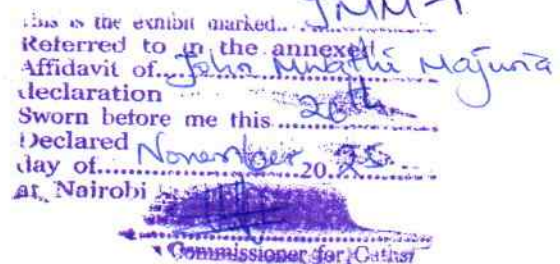 this is the exhibit marked.. JMM-1
Referred to in the annexed
Affidavit of... John Mwathi Majuria
declaration
Sworn before me this 20th
Declared
day of November 20.25
at Nairobi
Commissioner for Oaths